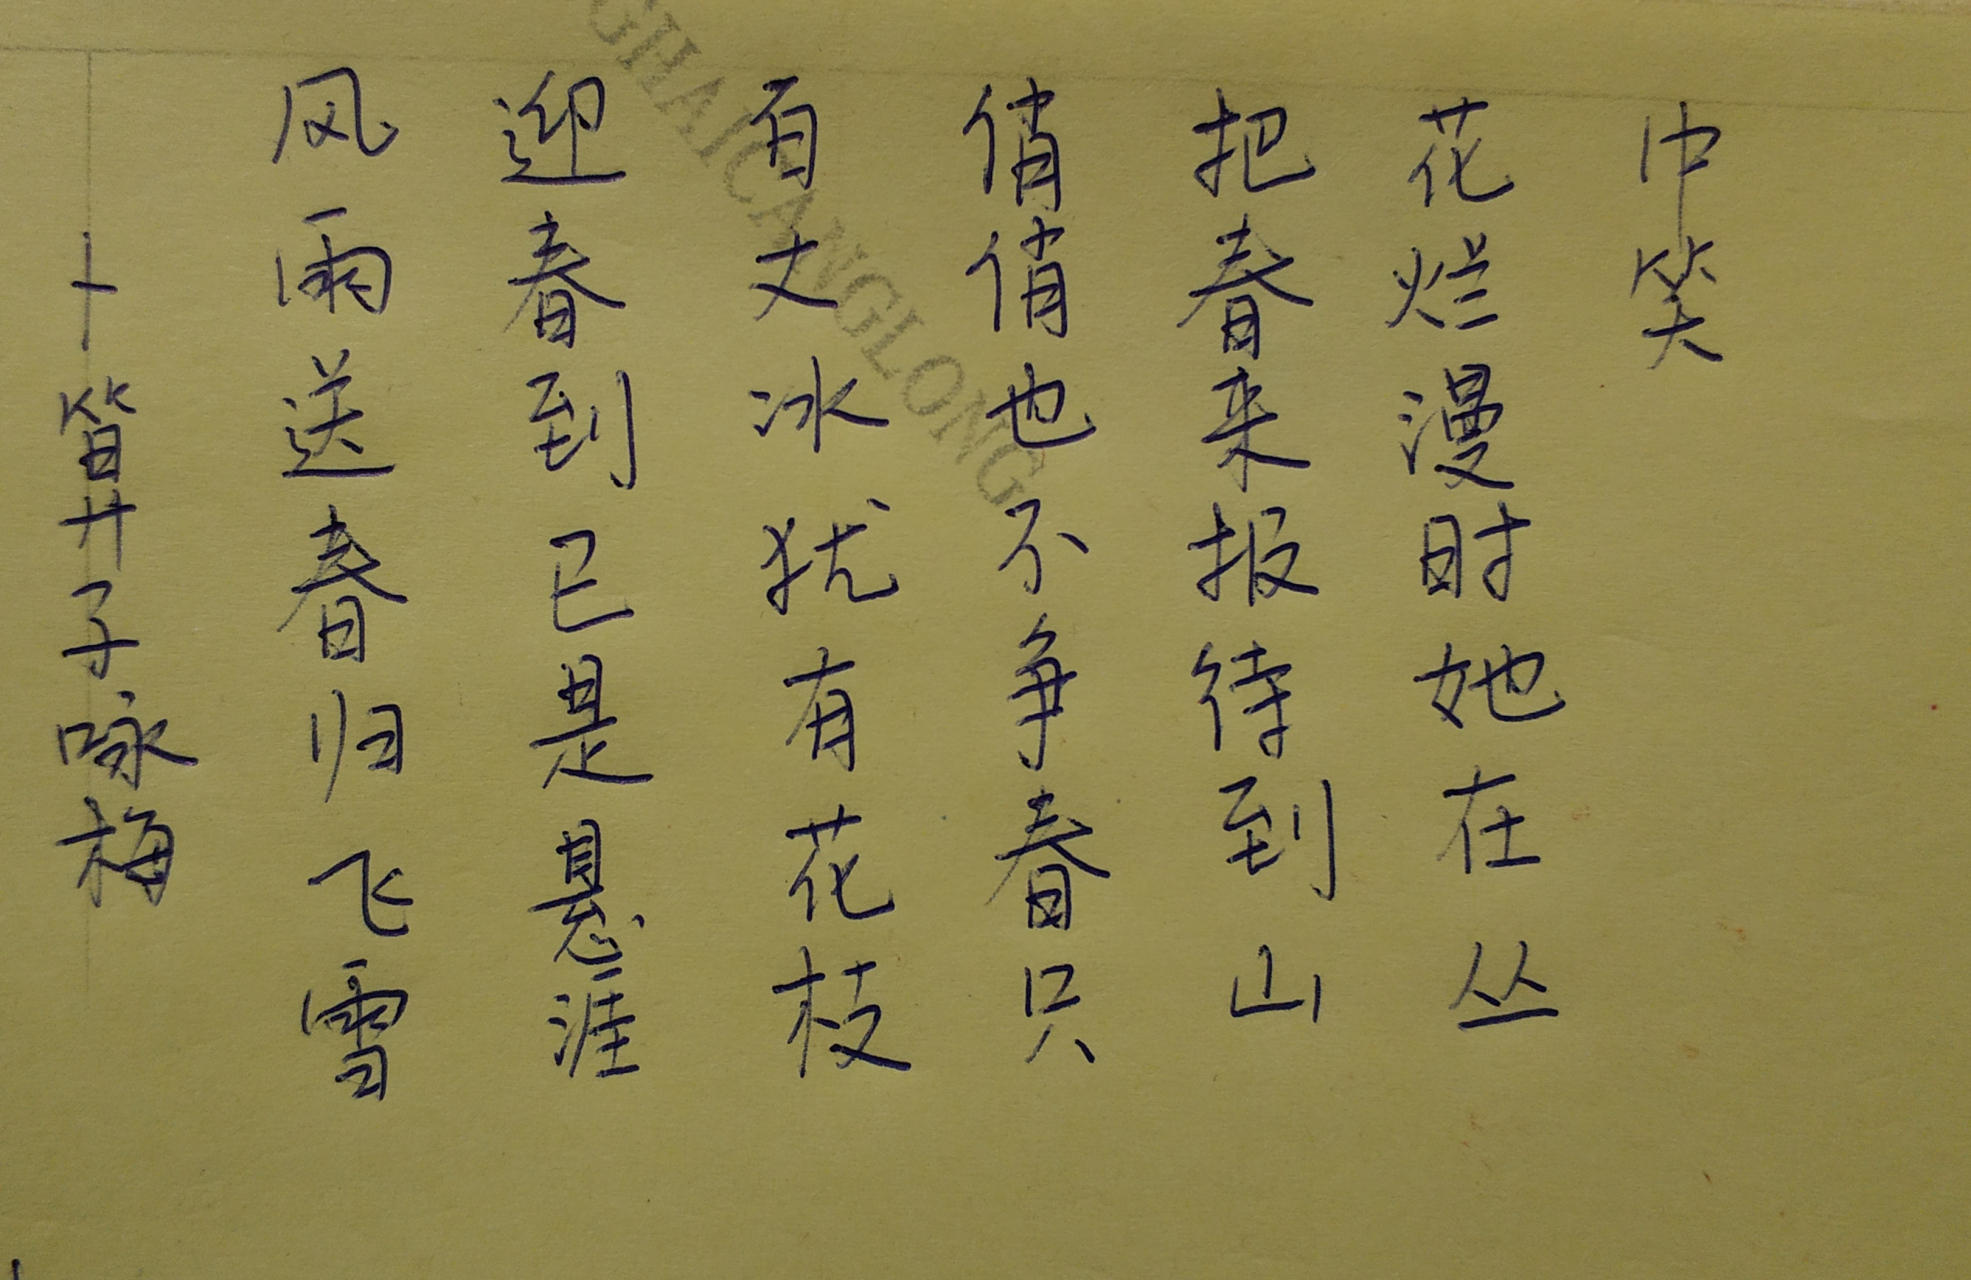 卜算子咏梅
风雨送春归飞雪
迎春到已是悬涯
百丈冰犹有花枝
俏俏也不争春只
把春来报待到山
花烂漫时她在丛
中笑
GHAICANGLONG